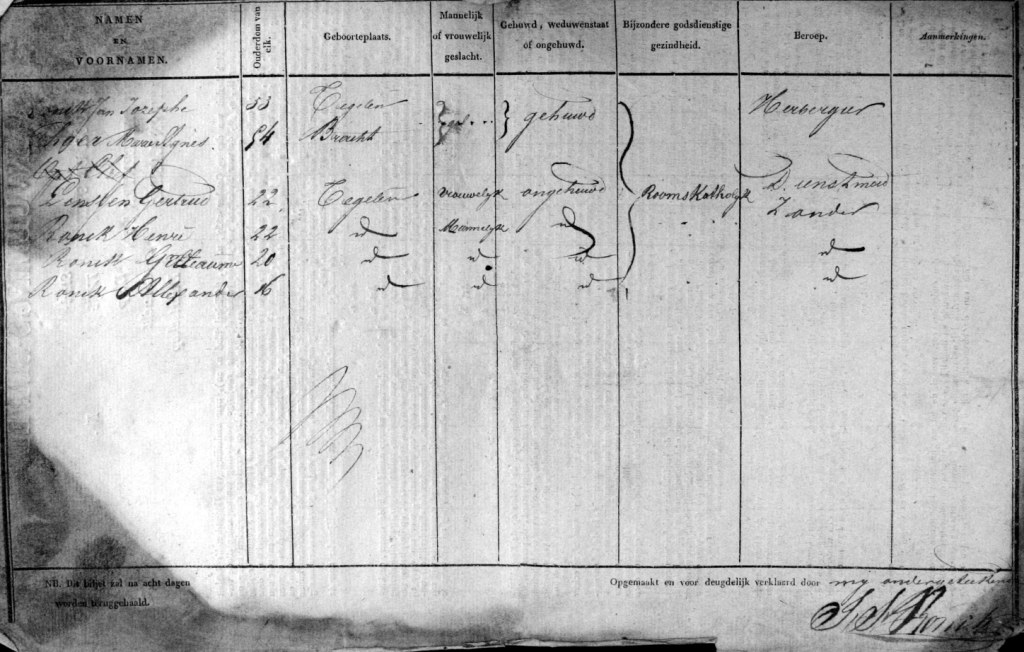 NAMEN EN VOORNAMEN. Ouderdom van elk. Geboorteplaats. Mannelijk of vrouwelijk geslacht. Gehuwd, weduwenstaat of ongehuwd. Bijzondere godsdienstige gezindheid. Beroep. Aanmerkingen.
Jan Josephe 53 Tegelen gehuwd Herbergier
Agnes 54 Bracht
Gertrud 22 Tegelen vrouwelijk ongehuwd Rooms Katholyk Dienstmeid
Ronck Henri 22 id Mannelyk id Zonder
Ronck 20 id id id id
Ronck Allexander 16 id id id id
NB. Dit biljet zal na acht dagen
worden teruggehaald.
Opgemaakt en voor deugdelijk verklaard door my ondergeteekend
Ronck